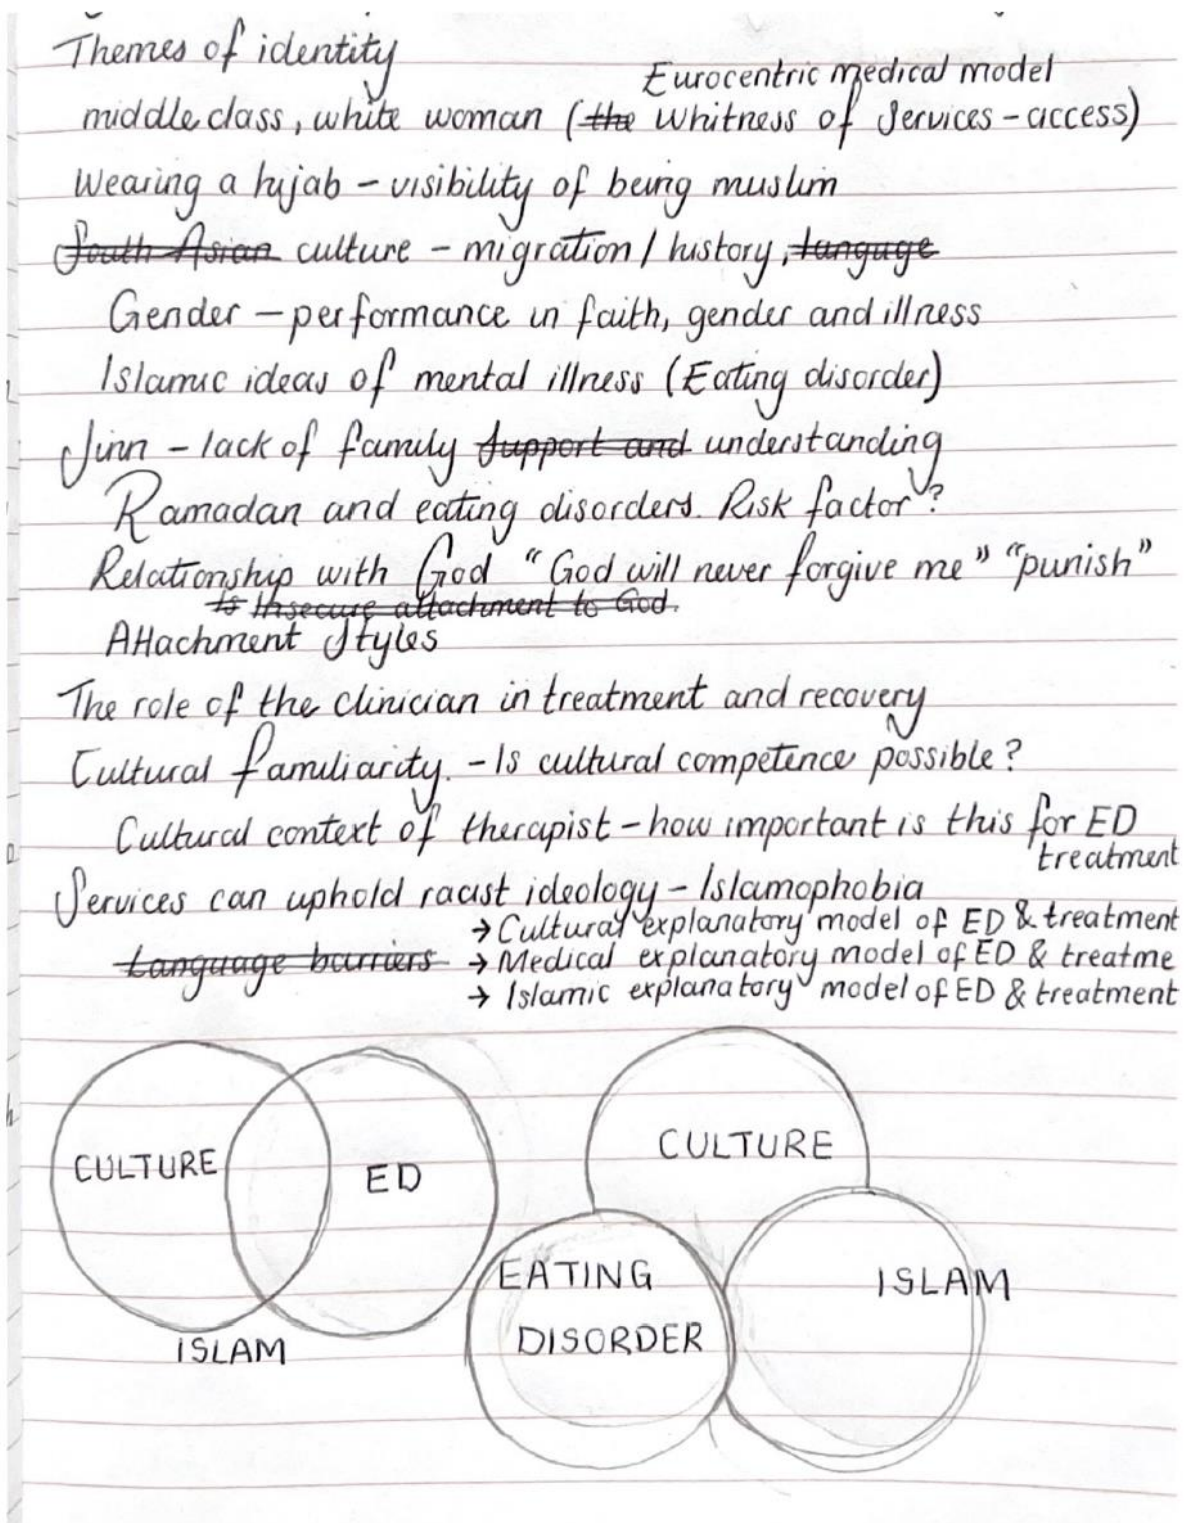 Themes of identity
Eurocentric medical model
middle class, white woman (the Whitness of Services - access)
Wearing a hijab - visibility of being muslim
South Asian culture - migration / history, language
Gender - performance in faith, gender and illness
Islamic ideas of mental illness (Eating disorder)
Jinn - lack of family support and understanding
Ramadan and eating disorders. Risk factor?
Relationship with God "God will never forgive me" "punish"
Is Insecure attachment to God.
Attachment Styles
The role of the clinician in treatment and recovery
Cultural familiarity. - Is cultural competence possible?
Cultural context of therapist - how important is this for ED
treatment
Services can uphold racist ideology - Islamophobia
→ Cultural explanatory model of ED & treatment
Language barriers → Medical explanatory model of ED & treatme
→ Islamic explanatory model of ED & treatment
CULTURE ED
ISLAM
CULTURE
EATING
DISORDER
ISLAM